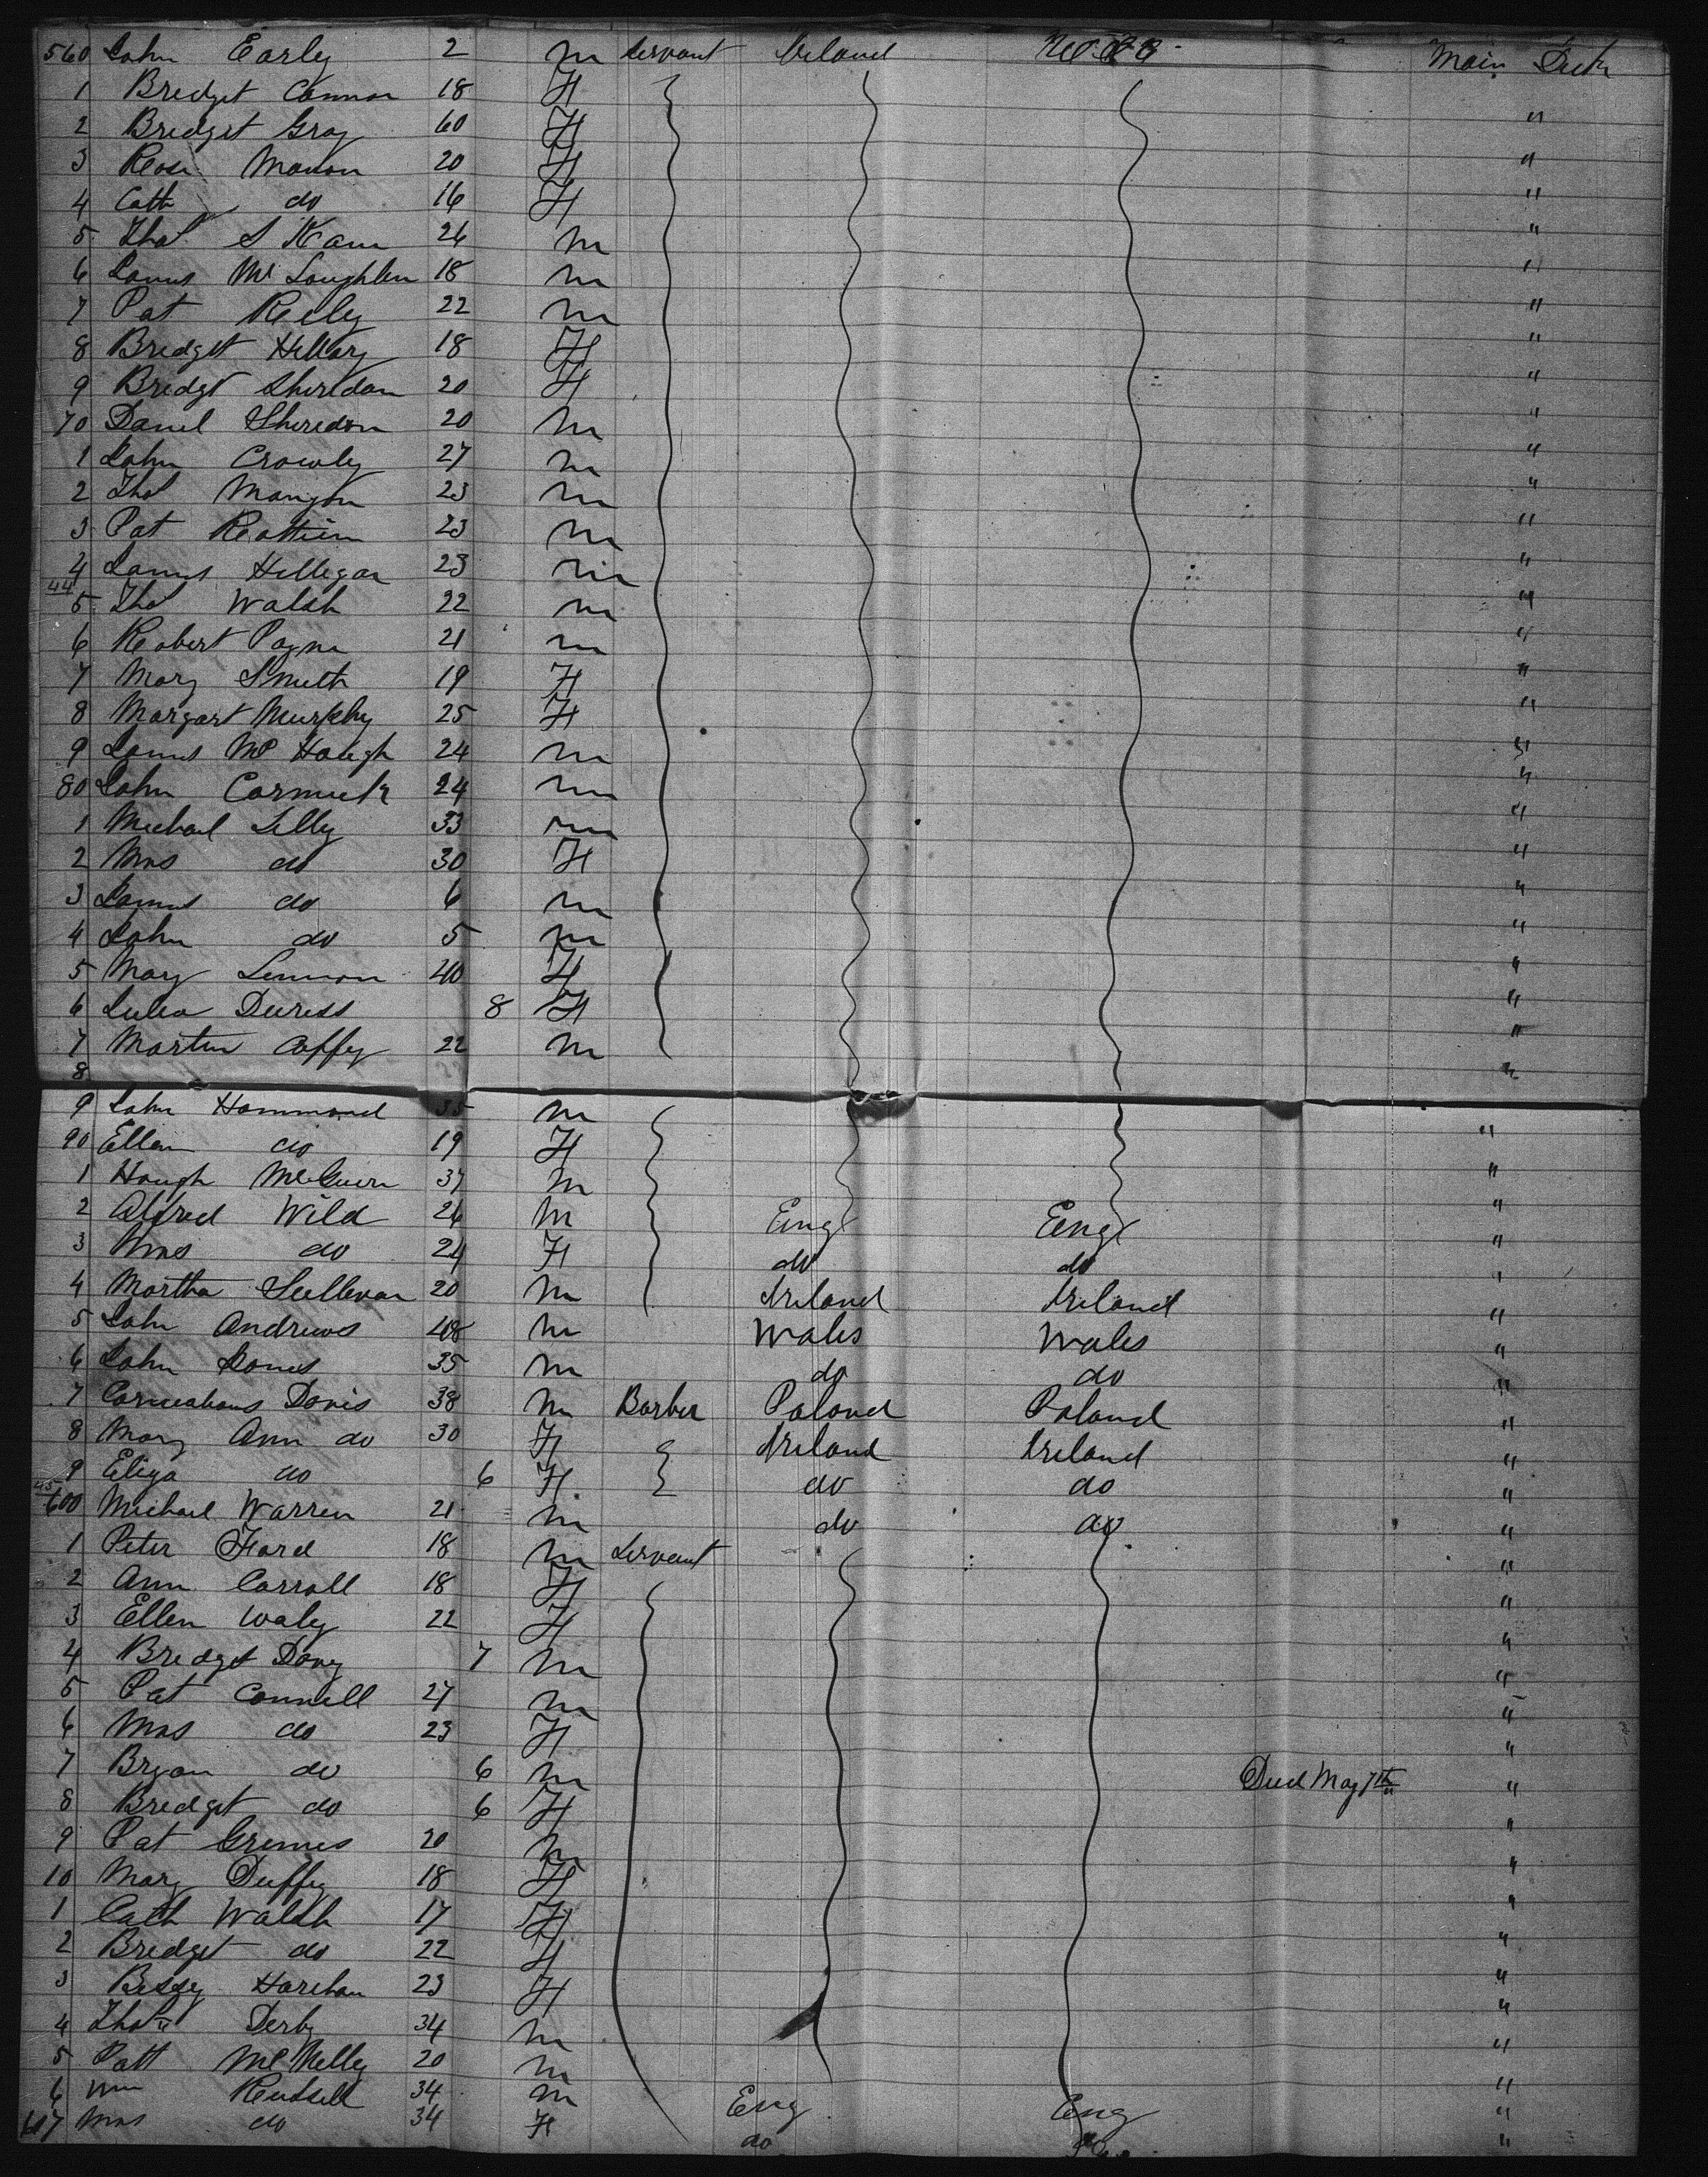 560 John Early 2 m Servant Ireland Main Deck
1 Bridget Connor 18 F
2 Bridget Gray 60 F "
3 Rose 20 F "
4 Cath do 16 F "
5 Thos 24 m "
6 James McLoughlin 18 m "
7 Pat Reily 22 m "
8 Bridget Hillary 18 F "
9 Bridgt Sheridan 20 F "
70 Daniel Sheridon 20 m "
1 John Crowly 27 m "
2 Thos Mangan 23 m "
3 Pat 23 m "
4 James Hilligan 23 m "
44
5 Thos Walsh 22 m "
6 Robert Payne 21 m "
7 Mary Smith 19 F "
8 Margart Murphy 25 F "
9 James Mc Haugh 24 m "
80 John Cormick 24 m "
1 Michael Lilly 33 m "
2 Mrs do 30 F "
3 James do 6 m "
4 John do 5 m "
5 Mary Lennon 40 F "
6 Julia 8 F "
7 Martin Coffey 22 m "
8 "
9 John Hammond 35 m
90 Ellen do 19 F "
1 Hough McGuire 37 m "
2 Alfred Wild 26 m Eng Eng "
3 Mrs do 24 F do do "
4 Martha Sullivan 20 m Ireland Ireland "
5 John Andrews 48 m Wales Wales "
6 John Jones 35 m do do "
7 Davis 38 m Barber Poland Poland "
8 Mary Ann do 30 F Ireland Ireland "
9 Eliza do 6 F do do "
45
600 Michael Warren 21 m do do "
1 Peter Ford 18 m Servant "
2 Ann Carroll 18 F "
3 Ellen Waly 22 F "
4 Bridget Davy 7 m "
5 Pat Connell 27 m "
6 Mrs do 23 F "
7 Bryan do 6 m Died May 7th "
8 Bridget do 6 F "
9 Pat Grimes 20 m "
10 Mary Duffy 18 F "
1 Cath Walsh 17 F "
2 Bridget do 22 F "
3 Bessy Harehan 23 F "
4 Thos Derby 34 m "
5 Patt McNelly 20 m "
6 Wm Russell 34 m Eng Eng "
617 Mrs do 34 F do "